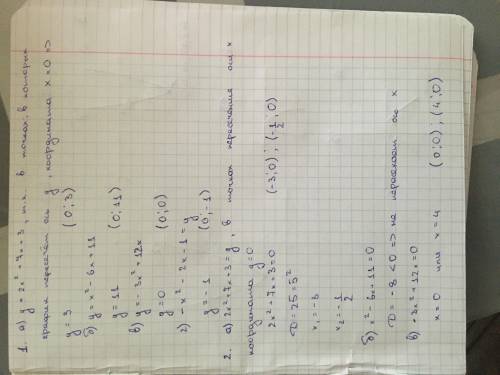 1. а) y = 2x² + 7x + 3, т.к. в точках, в которых
график пересечёт ось y, координата x=0 =>
y = 3 (0; 3)
б) y = x² - 6x + 11
y = 11 (0; 11)
в) y = -3x² + 12x
y = 0 (0; 0)
г) -x² - 2x - 1 = y
y = -1 (0; -1)
2. а) 2x² + 7x + 3 = y, в точках пересечения оси x
координата y=0
2x² + 7x + 3 = 0 (-3; 0); (-1/2; 0)
D = 25 = 5²
x₁ = -3
x₂ = -1/2
б) x² - 6x + 11 = 0
D = -8 < 0 => не пересекает ось x
в) -3x² + 12x = 0
x = 0 или x = 4 (0; 0); (4; 0)